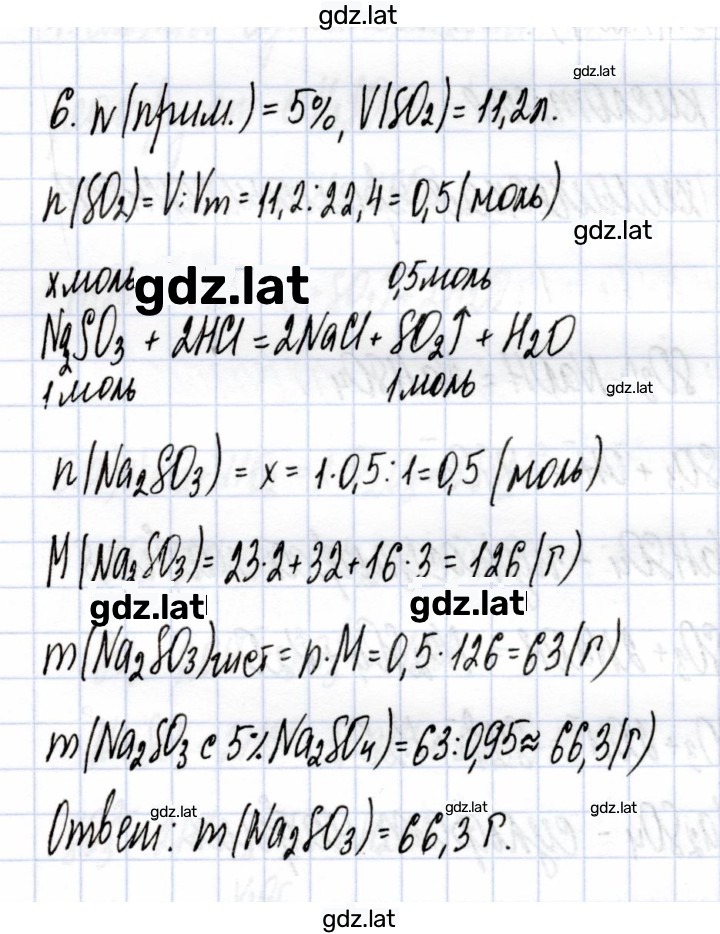 gdz.lat
gdz.lat
6. w(прим.) = 5%, V(SO₂) = 11,2л.
n(SO₂) = V:Vm = 11,2:22,4 = 0,5(моль)
gdz.lat
x моль gdz.lat 0,5моль
Na₂SO₃ + 2HCl = 2NaCl + SO₂↑ + H₂O
1моль 1моль gdz.lat
n(Na₂SO₃) = x = 1·0,5:1=0,5 (моль)
M(Na₂SO₃) = 23·2+32+16·3 = 126(г)
gdz.lat gdz.lat
m(Na₂SO₃)чист = n·M = 0,5·126 = 63(г)
m(Na₂SO₃ с 5% Na₂SO₄) = 63:0,95≈ 66,3(г)
gdz.lat gdz.lat gdz.lat
Ответ: m(Na₂SO₃) = 66,3 г.
gdz.lat